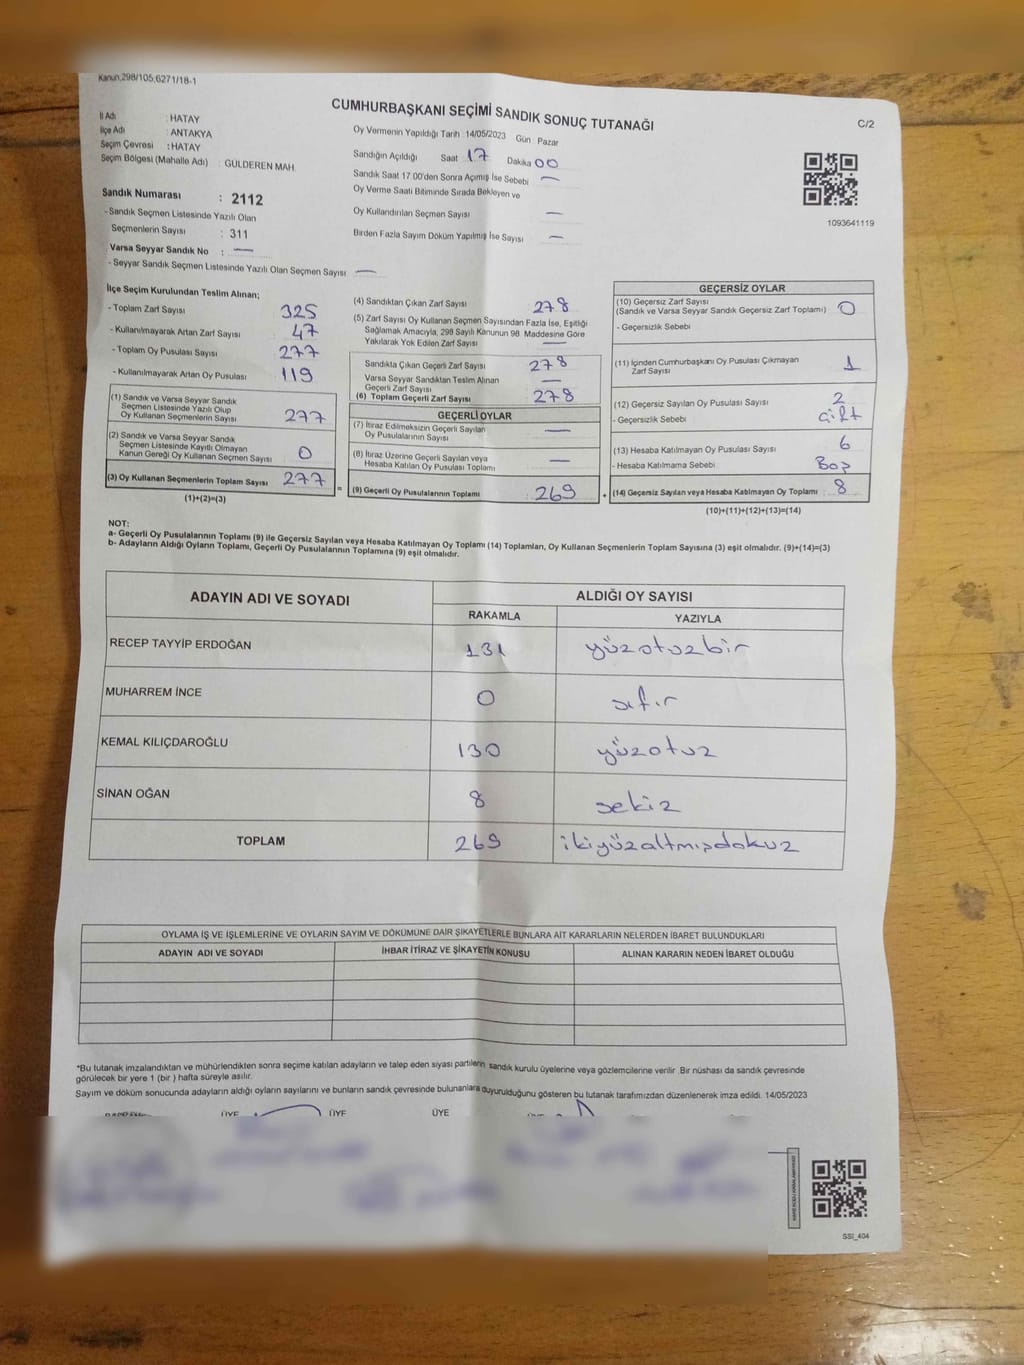 Kanun,298/105,6271/18-1
CUMHURBAŞKANI SEÇİMİ SANDIK SONUÇ TUTANAĞI
C/2
İl Adı : HATAY
İlçe Adı : ANTAKYA
Seçim Çevresi : HATAY
Seçim Bölgesi (Mahalle Adı) : GÜLDEREN MAH.
Oy Vermenin Yapıldığı Tarih : 14/05/2023 Gün : Pazar
Sandığın Açıldığı Saat 17 Dakika 00
Sandık Saat 17.00'den Sonra Açımış İse Sebebi —
Oy Verme Saati Bitiminde Sırada Bekleyen ve
Oy Kullandırılan Seçmen Sayısı —
Birden Fazla Sayım Döküm Yapılmış İse Sayısı —
1093641119
Sandık Numarası : 2112
- Sandık Seçmen Listesinde Yazılı Olan
Seçmenlerin Sayısı : 311
Varsa Seyyar Sandık No : —
- Seyyar Sandık Seçmen Listesinde Yazılı Olan Seçmen Sayısı —
İlçe Seçim Kurulundan Teslim Alınan;
- Toplam Zarf Sayısı 325
- Kullanılmayarak Artan Zarf Sayısı 47
- Toplam Oy Pusulası Sayısı 277
- Kullanılmayarak Artan Oy Pusulası 119
(1) Sandık ve Varsa Seyyar Sandık
Seçmen Listesinde Yazılı Olup
Oy Kullanan Seçmenlerin Sayısı 277
(2) Sandık ve Varsa Seyyar Sandık
Seçmen Listesinde Kayıtlı Olmayan
Kanun Gereği Oy Kullanan Seçmen Sayısı 0
(3) Oy Kullanan Seçmenlerin Toplam Sayısı 277
(1)+(2)=(3)
(4) Sandıktan Çıkan Zarf Sayısı 278
(5) Zarf Sayısı Oy Kullanan Seçmen Sayısından Fazla İse, Eşitliği
Sağlamak Amacıyla, 298 Sayılı Kanunun 98. Maddesine Göre
Yakılarak Yok Edilen Zarf Sayısı —
Sandıkta Çıkan Geçerli Zarf Sayısı 278
Varsa Seyyar Sandıktan Teslim Alınan
Geçerli Zarf Sayısı —
(6) Toplam Geçerli Zarf Sayısı 278
GEÇERLİ OYLAR
(7) İtiraz Edilmeksizin Geçerli Sayılan
Oy Pusulalarının Sayısı —
(8) İtiraz Üzerine Geçerli Sayılan veya
Hesaba Katılan Oy Pusulası Toplamı —
= (9) Geçerli Oy Pusulalarının Toplamı 269
GEÇERSİZ OYLAR
(10) Geçersiz Zarf Sayısı
(Sandık ve Varsa Seyyar Sandık Geçersiz Zarf Toplamı) 0
- Geçersizlik Sebebi
(11) İçinden Cumhurbaşkanı Oy Pusulası Çıkmayan
Zarf Sayısı 1
(12) Geçersiz Sayılan Oy Pusulası Sayısı 2
- Geçersizlik Sebebi çift
(13) Hesaba Katılmayan Oy Pusulası Sayısı 6
- Hesaba Katılmama Sebebi Boş
+ (14) Geçersiz Sayılan veya Hesaba Katılmayan Oy Toplamı 8
(10)+(11)+(12)+(13)=(14)
NOT:
a- Geçerli Oy Pusulalarının Toplamı (9) ile Geçersiz Sayılan veya Hesaba Katılmayan Oy Toplamı (14) Toplamları, Oy Kullanan Seçmenlerin Toplam Sayısına (3) eşit olmalıdır. (9)+(14)=(3)
b- Adayların Aldığı Oyların Toplamı, Geçerli Oy Pusulalarının Toplamına (9) eşit olmalıdır.
ADAYIN ADI VE SOYADI ALDIĞI OY SAYISI
RAKAMLA YAZIYLA
RECEP TAYYİP ERDOĞAN 131 yüzotuzbir
MUHARREM İNCE 0 sıfır
KEMAL KILIÇDAROĞLU 130 yüzotuz
SİNAN OĞAN 8 sekiz
TOPLAM 269 ikiyüzaltmışdokuz
OYLAMA İŞ VE İŞLEMLERİNE VE OYLARIN SAYIM VE DÖKÜMÜNE DAİR ŞİKAYETLERLE BUNLARA AİT KARARLARIN NELERDEN İBARET BULUNDUKLARI
ADAYIN ADI VE SOYADI İHBAR İTİRAZ VE ŞİKAYETİN KONUSU ALINAN KARARIN NEDEN İBARET OLDUĞU
*Bu tutanak imzalandıktan ve mühürlendikten sonra seçime katılan adayların ve talep eden siyasi partilerin sandık kurulu üyelerine veya gözlemcilerine verilir .Bir nüshası da sandık çevresinde
görülecek bir yere 1 (bir ) hafta süreyle asılır.
Sayım ve döküm sonucunda adayların aldığı oyların sayılarını ve bunların sandık çevresinde bulunanlara duyurulduğunu gösteren bu tutanak tarafımızdan düzenlenerek imza edildi. 14/05/2023
ÜYE ÜYE ÜYE
SSİ_404